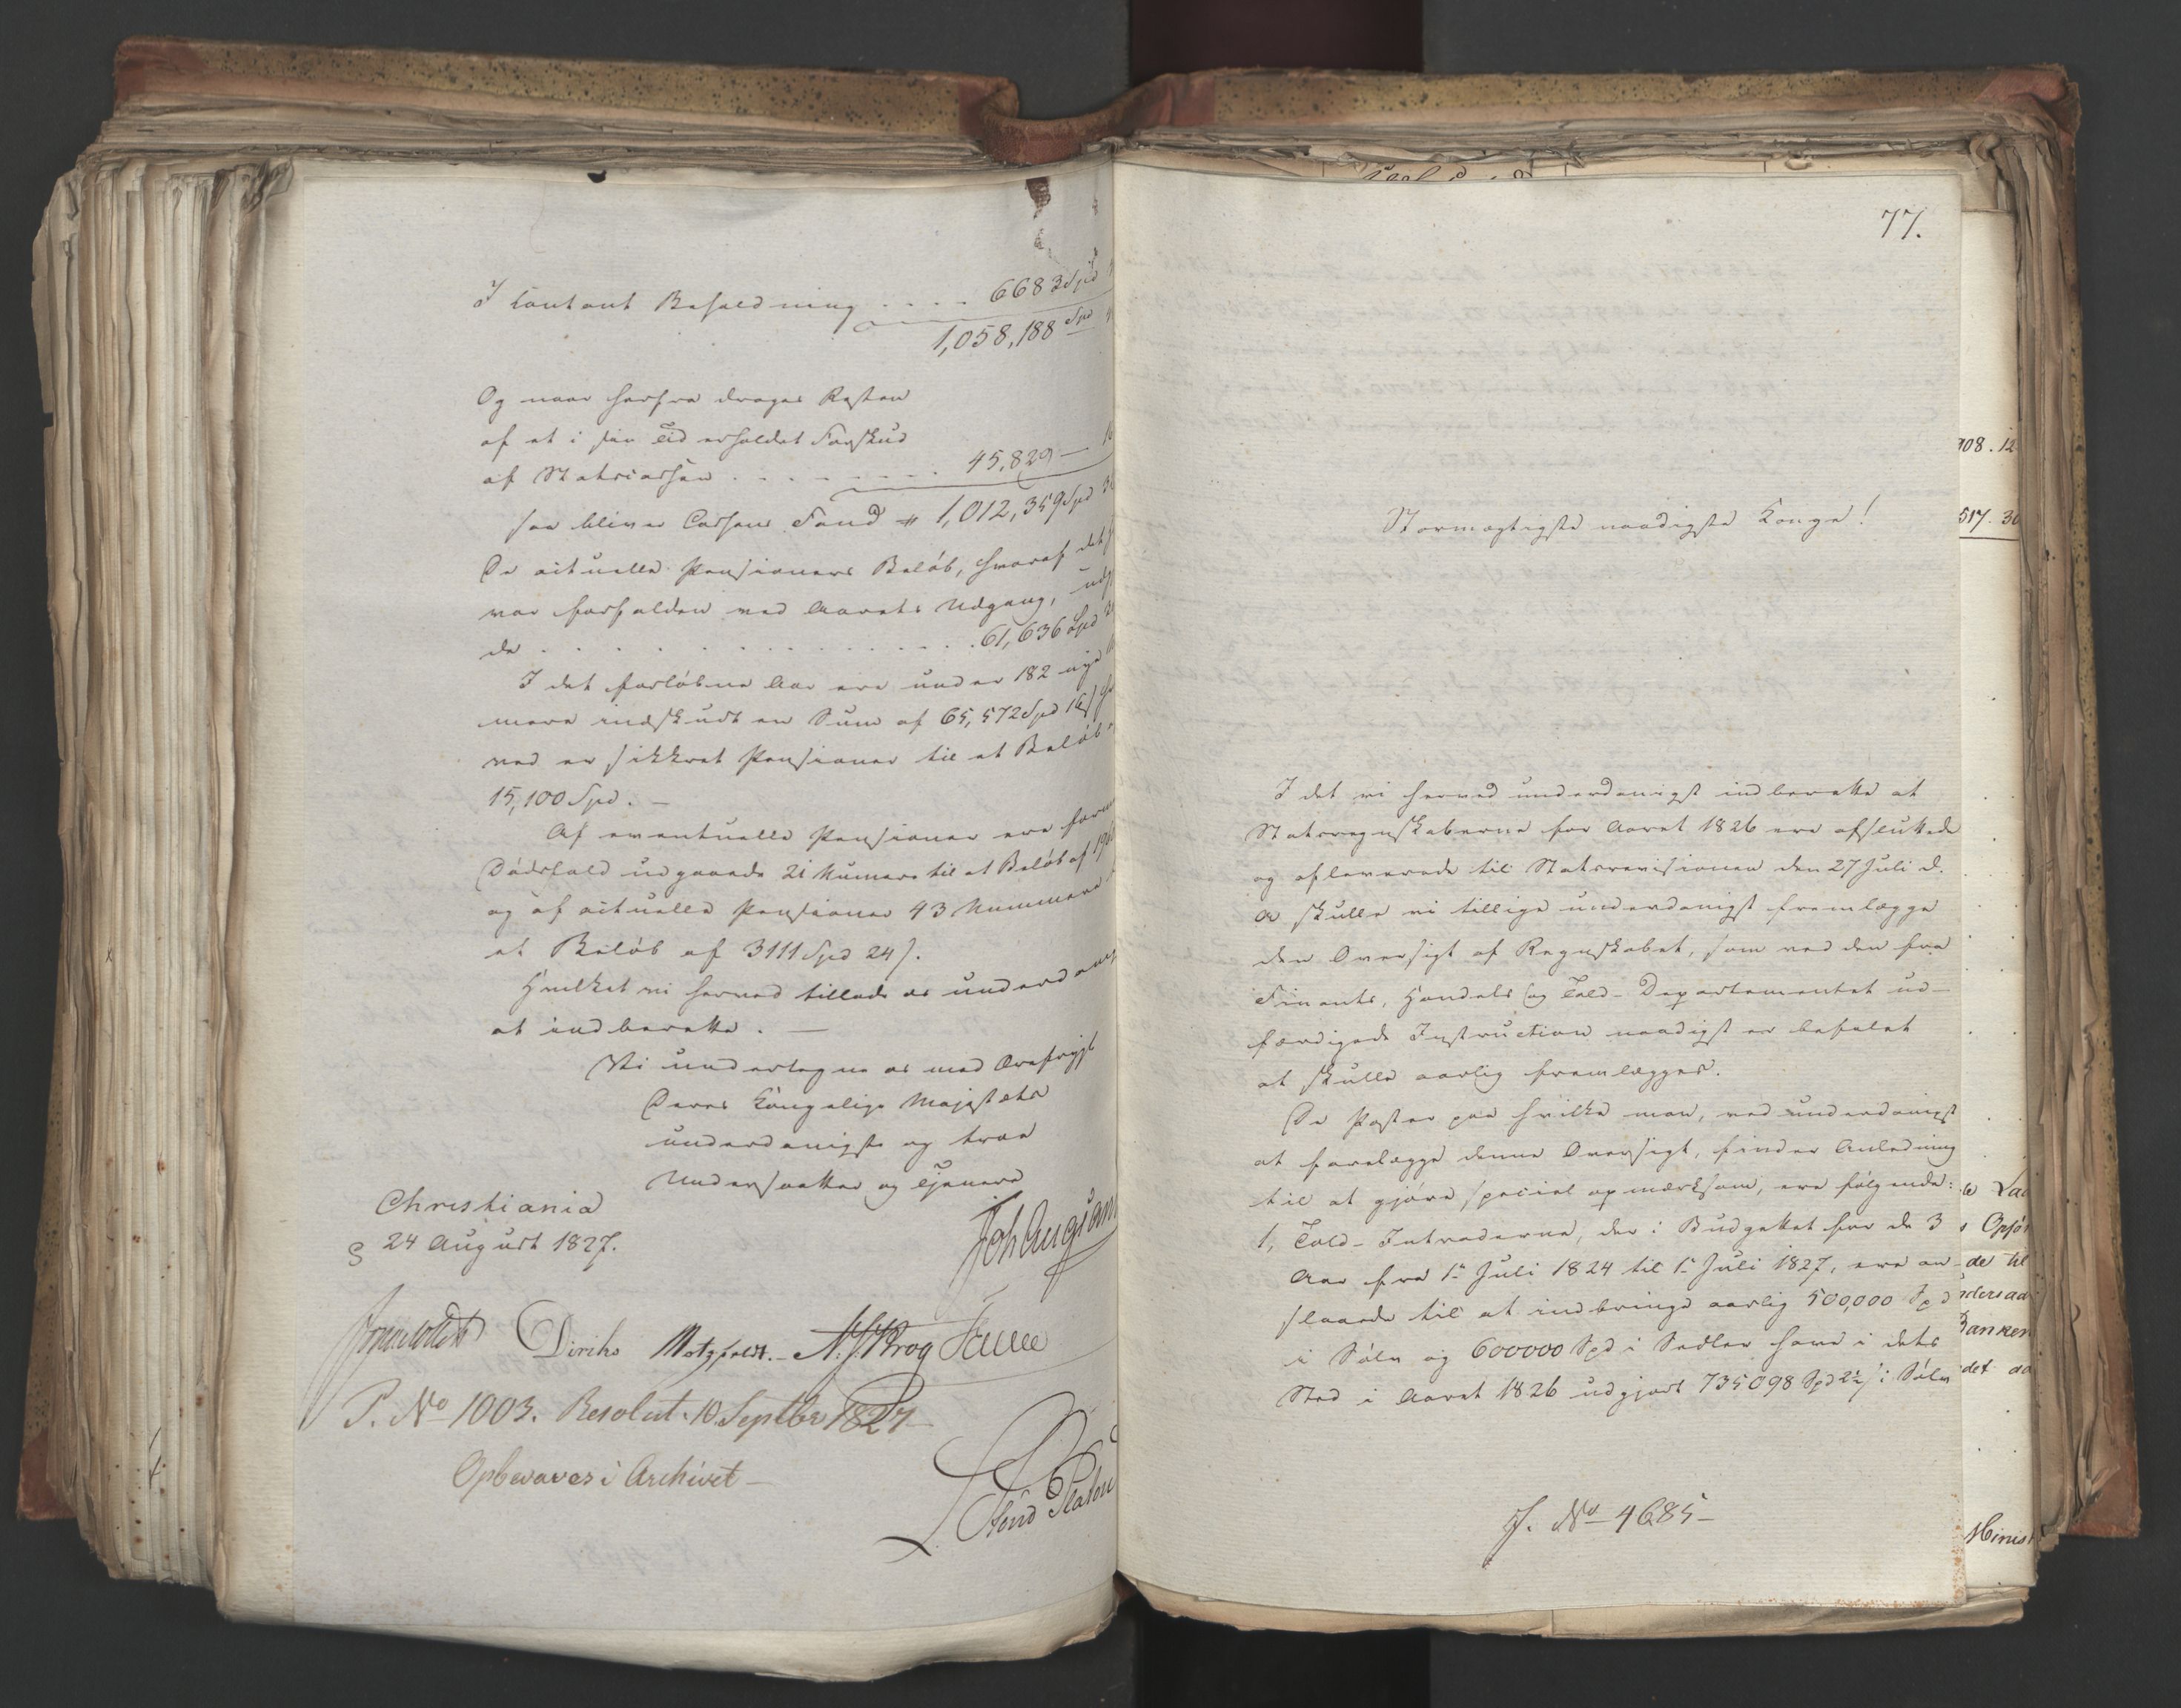 I Contant Beholdning . . . . 6683 Spd
1,058,188 Spd
Og naar herfra drages Resten
af et i sin Tid erholdet Forskud
af Statscassen . . . . . . . 45,829 —
saa bliver Cassens Fond 1,012,359 Spd
De actuelle Pensioners Beløb, hvoraf det
var forfalden ved Aarets Udgang,
de . . . . . . . . . . . . 61,636 Spd
I det forløbne Aar ere under 182 nye
mere indskudt en Sum af 65,572 Spd 16 s
ved er sikkret Pensioner til et Beløb
15,100 Spd. —
Af eventuelle Pensioner ere
Dødsfald udgaaede 21 Numere til et Beløb af
og af actuelle Pensioner 43 Nummere
et Beløb af 3111 Spd 24 s.
Hvilket vi herved tillade os
at indberette. —
Vi undertegne os med Ærefrygt
Deres Kongelige Majestæts
underdanigste og troe
Undersaatter og Tjenere
Christiania
24 August 1827.
Diriks Motzfeldt. — Krog
P. No 1003. Resolut. 10 Septbr 1827
Opbevares i Archivet —
77.
Stormægtigste naadigste Konge!
I det vi herved underdanigst indberette at
Statsregnskaberne for Aaret 1826 ere afsluttede
og afleverede til Statsrevisionen den 27 Juli d.
A skulle vi tillige underdanigst fremlægge
den Oversigt af Regnskabet, som ved den fra
Finants, Handels og Told-Departementet ud-
færdigede Instruction naadigst er befalet
at skulle aarlig fremlægges.
De Poster paa hvilke man, ved underdanigst
at forelægge denne Oversigt, finder Anledning
til at gjøre special opmærksom, ere følgende:
1, Told-Intraderne, der i Budgettet for de 3
Aar fra 1ste Juli 1824 til 1ste Juli 1827, ere an-
slaaede til at indbringe aarlig 500,000 Spd
i Sølv og 600000 Spd i Sedler have i dets
Sted i Aaret 1826 udgjort 735098 Spd 2½ s i Sølv
J. No 4685 —